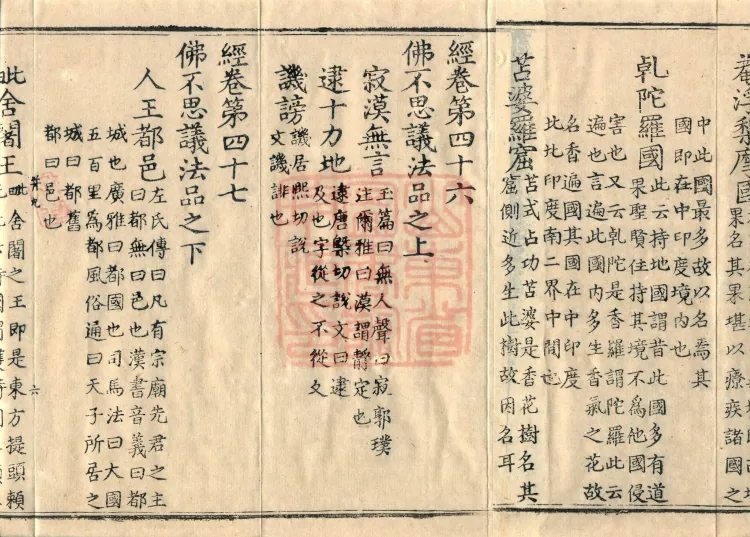 菴浮梨摩國
果名其果堪以療疾諸國之
中此國最多故以名焉其
國即在中印度境內也
乹陀羅國此云持地國謂昔此國多有道
果聖賢住持其境不為他國侵
害也又云乹陀是香羅謂陀羅此云
遍也言遍此國內多生香氣之花故
名香遍國其國在中印度
比北印度南二界中間也
苫婆羅窟苫式占功苫婆是香花樹名其
窟側近多生此樹故因名耳
經卷第四十六
佛不思議法品之上
寂漠無言玉篇曰無人聲曰寂郭璞
注爾雅曰漠謂靜定也
逮十力地逮唐槩切說文曰逮
及也字從之不從夂
譏謗譏居熙切說
文譏誹也
經卷第四十七
佛不思議法品之下
人王都邑左氏傳曰凡有宗廟先君之主
曰都無曰邑也漢書音義曰都
城也廣雅曰都國也司馬法曰大國
五百里為都風俗通曰天子所居之
城曰都舊
都曰邑也
六
毗舍闍王毗舍闍之王即是東方提頭賴